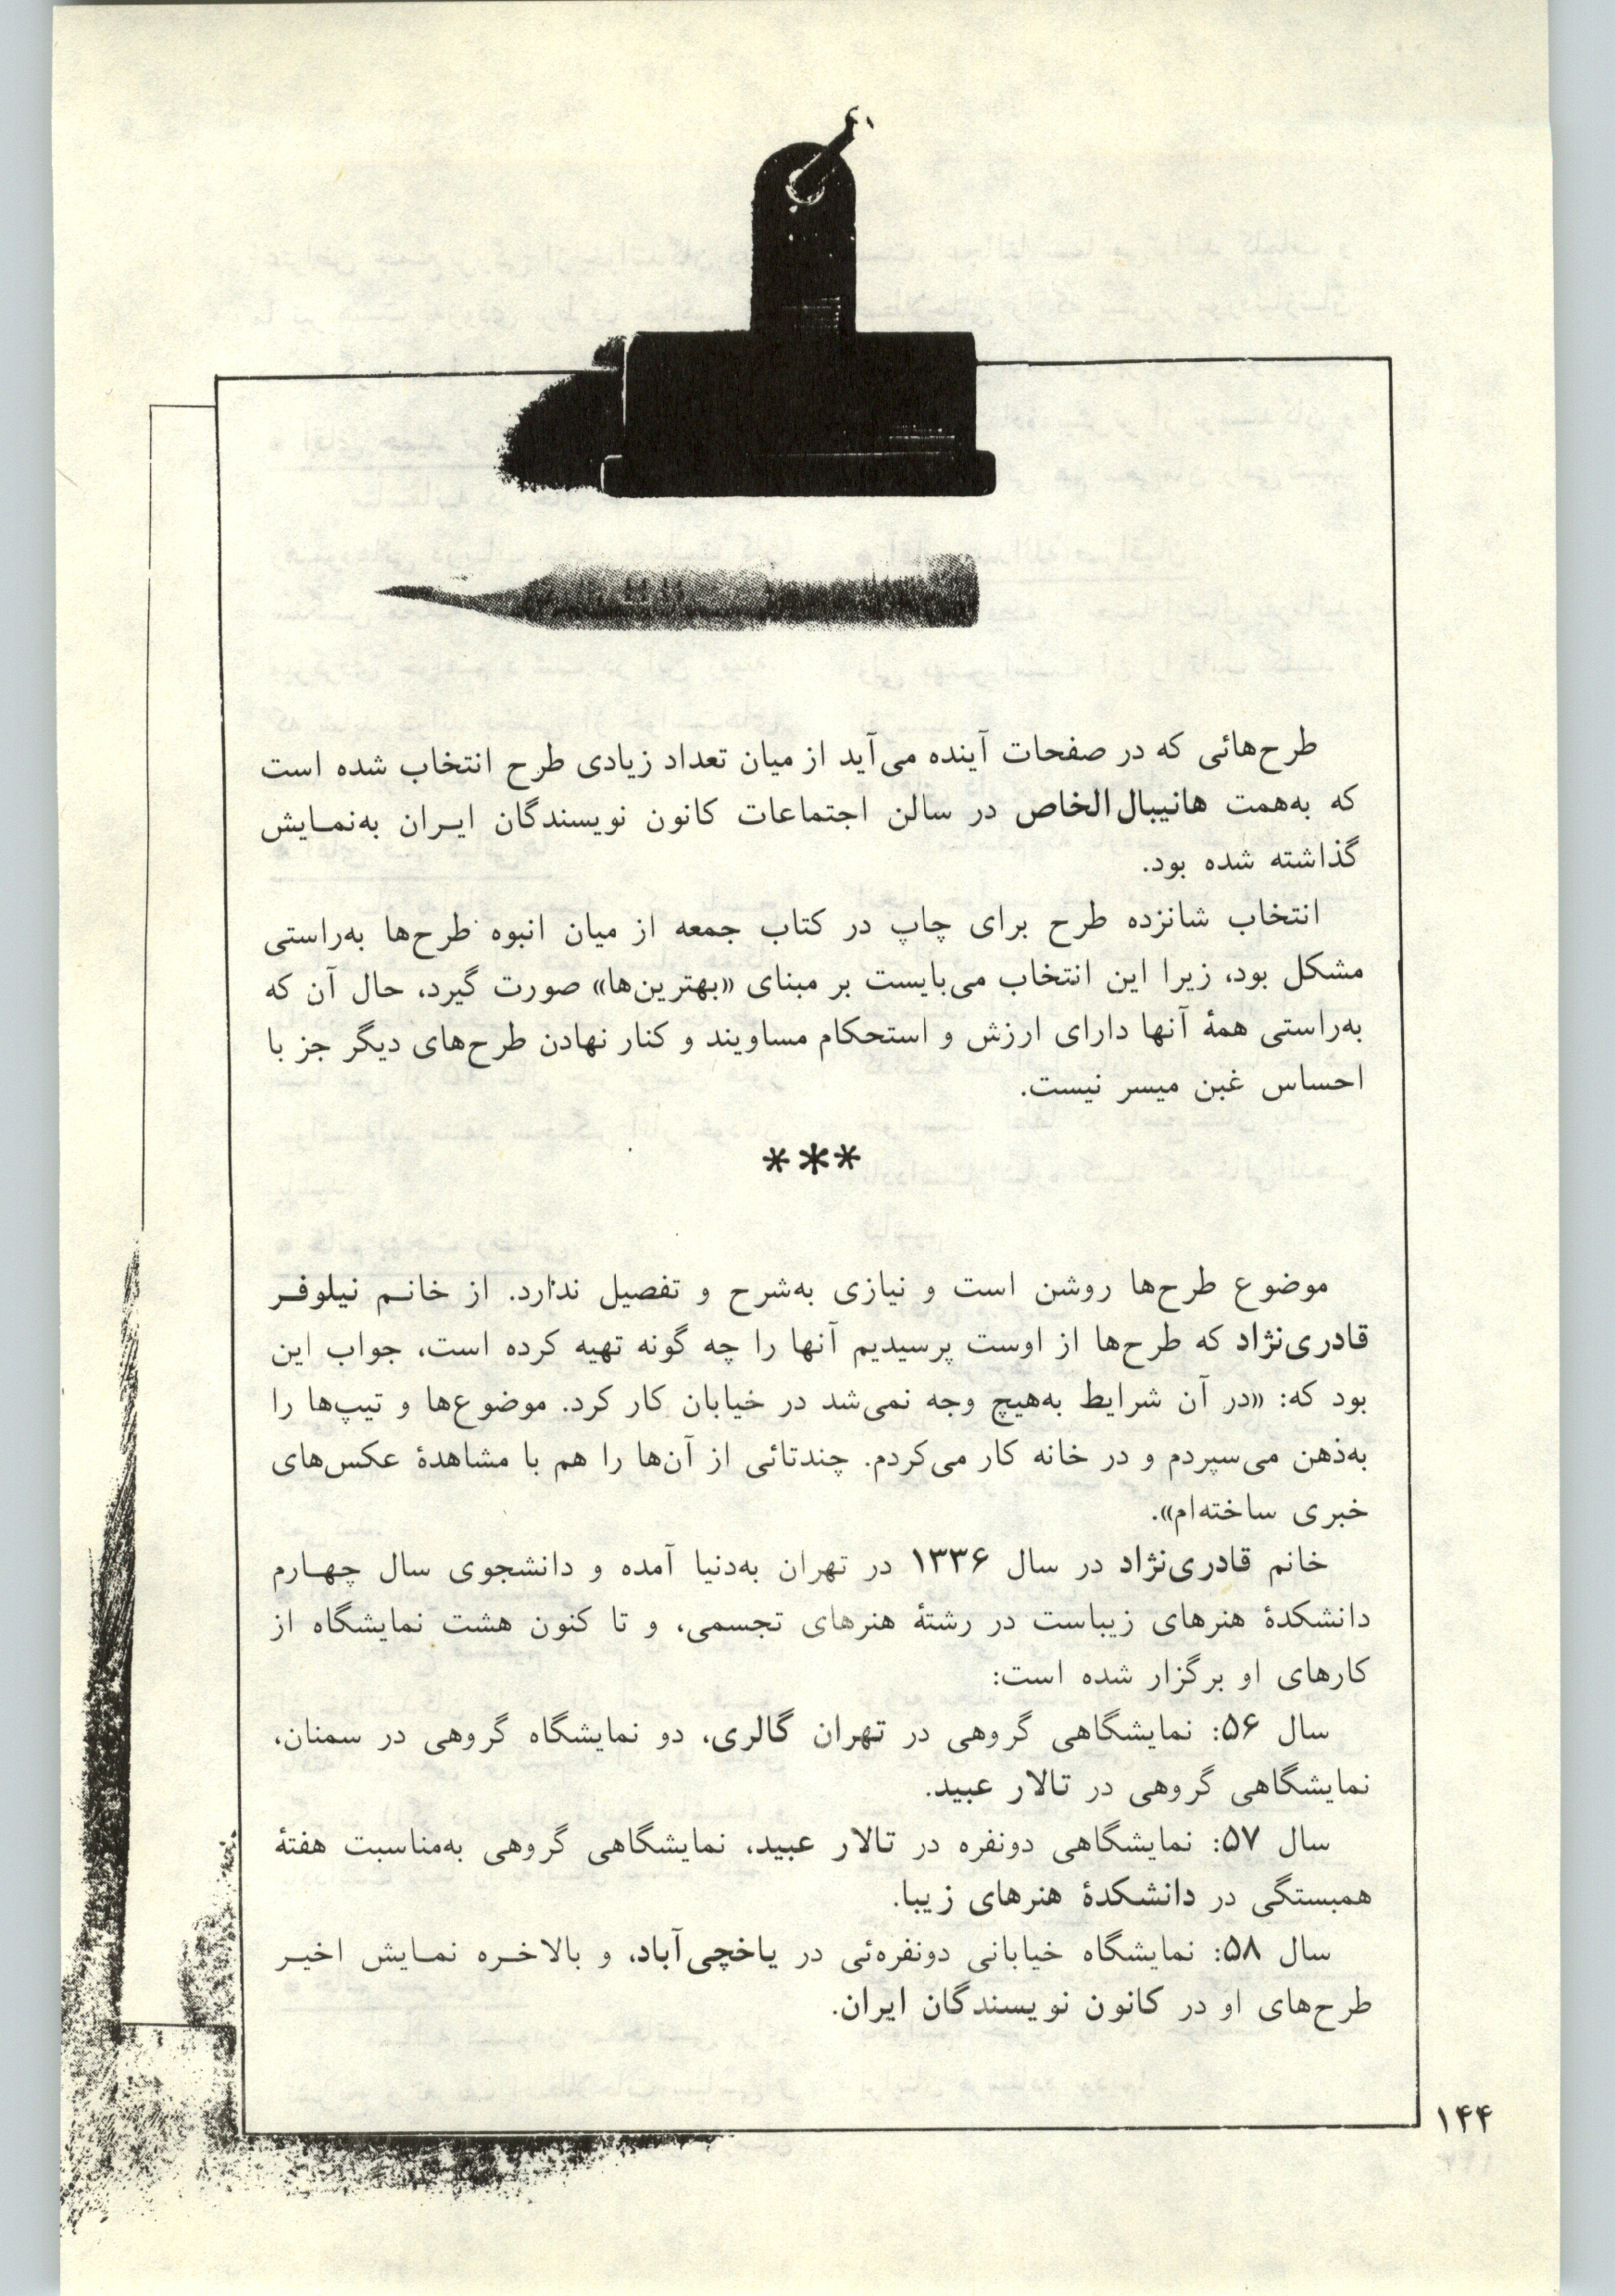 طرح‌هائی که در صفحات آینده می‌آید از میان تعداد زیادی طرح انتخاب شده است
که به‌همت هانیبال‌الخاص در سالن اجتماعات کانون نویسندگان ایـران به‌نمـایش
گذاشته شده بود.
انتخاب شانزده طرح برای چاپ در کتاب جمعه از میان انبوه طرح‌ها به‌راستی
مشکل بود، زیرا این انتخاب می‌بایست بر مبنای «بهترین‌ها» صورت گیرد، حال آن که
به‌راستی همهٔ آنها دارای ارزش و استحکام مساویند و کنار نهادن طرح‌های دیگر جز با
احساس غبن میسر نیست.
***
موضوع طرح‌ها روشن است و نیازی به‌شرح و تفصیل ندارد. از خانـم نیلوفـر
قادری‌نژاد که طرح‌ها از اوست پرسیدیم آنها را چه گونه تهیه کرده است، جواب این
بود که: «در آن شرایط به‌هیچ وجه نمی‌شد در خیابان کار کرد. موضوع‌ها و تیپ‌ها را
به‌ذهن می‌سپردم و در خانه کار می‌کردم. چندتائی از آن‌ها را هم با مشاهدهٔ عکس‌های
خبری ساخته‌ام».
خانم قادری‌نژاد در سال ۱۳۳۶ در تهران به‌دنیا آمده و دانشجوی سال چهـارم
دانشکدهٔ هنرهای زیباست در رشتهٔ هنرهای تجسمی، و تا کنون هشت نمایشگاه از
کارهای او برگزار شده است:
سال ۵۶: نمایشگاهی گروهی در تهران گالری، دو نمایشگاه گروهی در سمنان،
نمایشگاهی گروهی در تالار عبید.
سال ۵۷: نمایشگاهی دونفره در تالار عبید، نمایشگاهی گروهی به‌مناسبت هفتهٔ
همبستگی در دانشکدهٔ هنرهای زیبا.
سال ۵۸: نمایشگاه خیابانی دونفره‌ئی در یاخچی‌آباد، و بالاخـره نمـایش اخیـر
طرح‌های او در کانون نویسندگان ایران.
۱۴۴